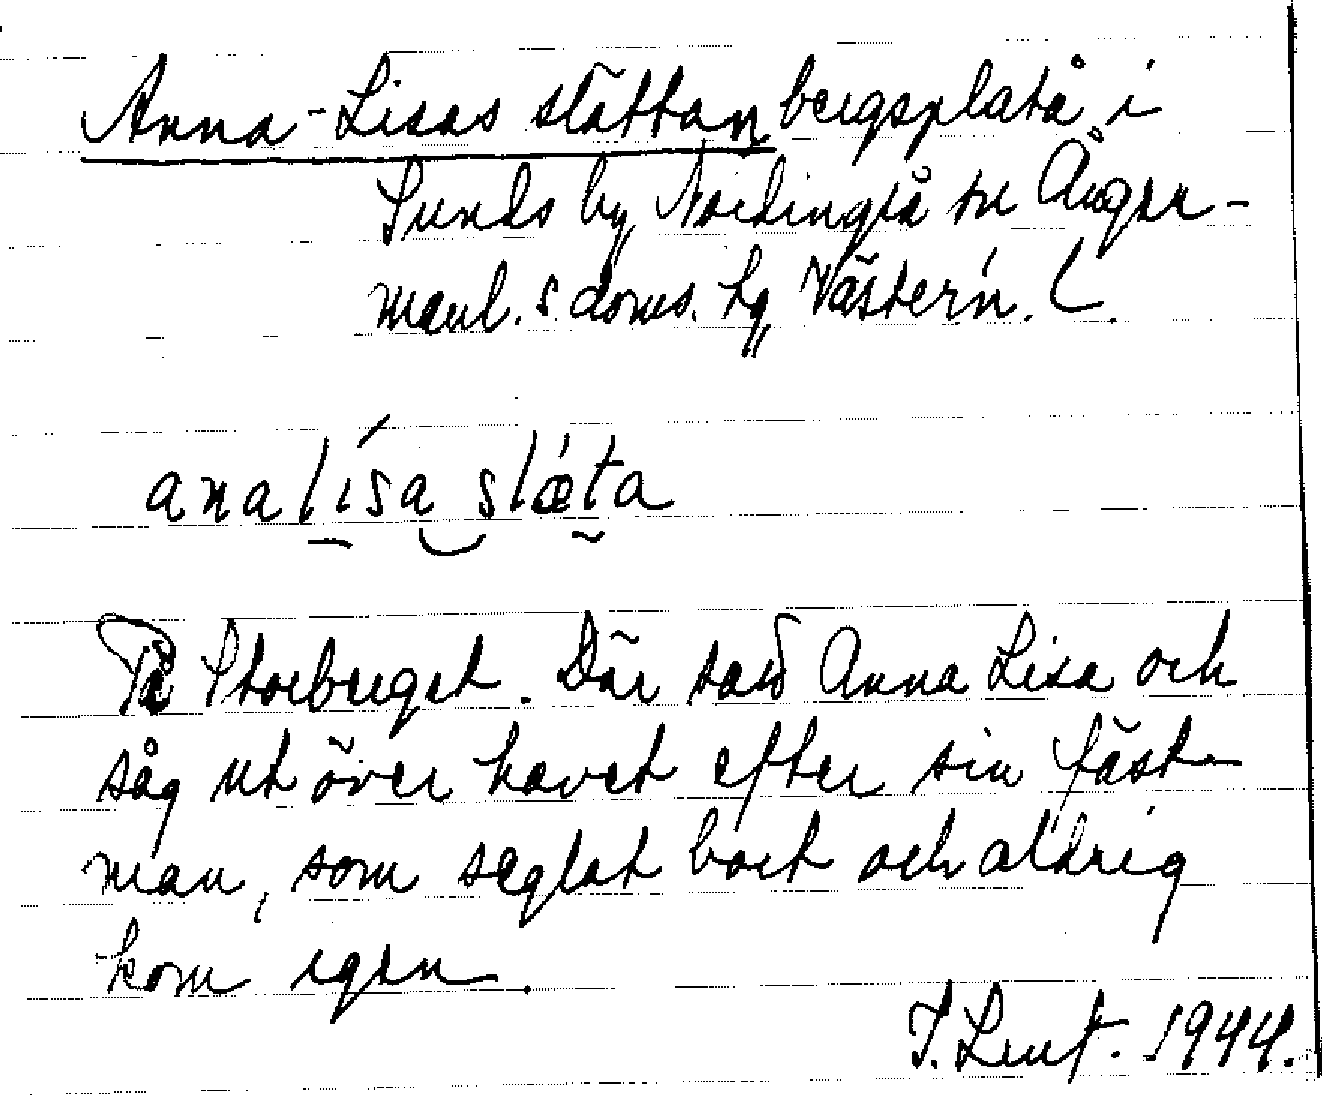 Anna-Lisas slåttan bergsplatå i
Sunds by Nordingrå sn Ånger-
manl. s doms. hg Västern. L.
analísa slǽta
På Storberget. Där satt Anna Lisa och
såg ut över havet efter sin fäst-
man, som seglat bort och aldrig
kom igen.
1944.